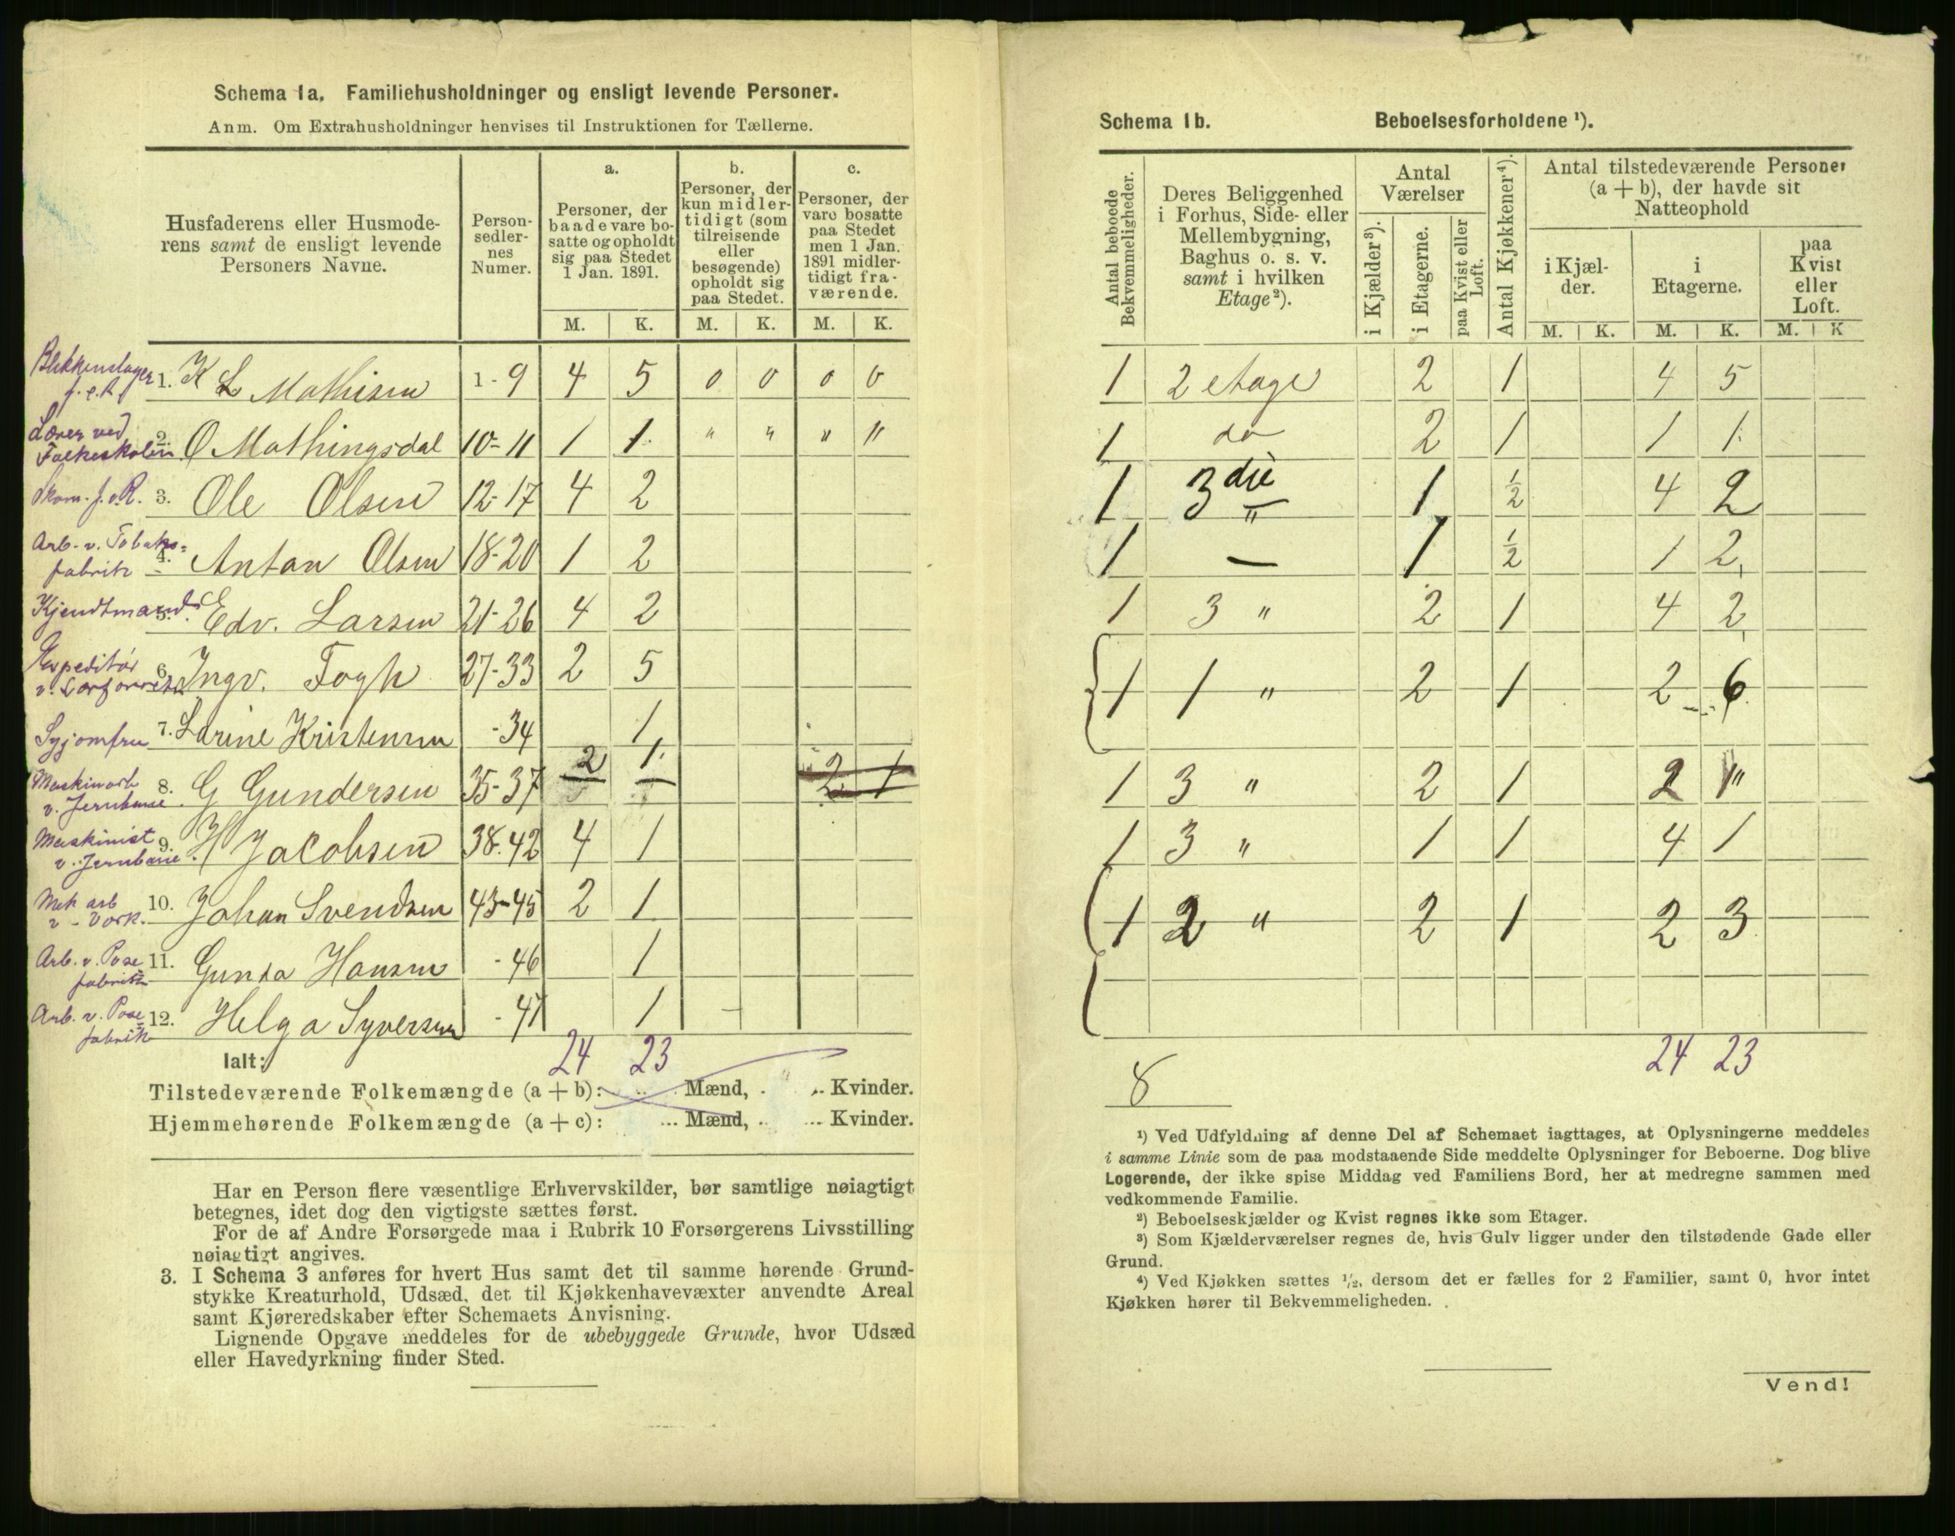 Schema 1a. Familiehusholdninger og ensligt levende Personer.
Anm. Om Extrahusholdninger henvises til Instruktionen for Tællerne.
Husfaderens eller Husmoderens samt de ensligt levende Personers Navne.
Personsedlernes Numer.
a. Personer, der baade vare bosatte og opholdt sig paa Stedet 1 Jan. 1891.
b. Personer, der kun midlertidigt (som tilreisende eller besøgende) opholdt sig paa Stedet.
c. Personer, der vare bosatte paa Stedet men 1 Jan. 1891 midlertidigt fraværende.
M. K. M. K. M. K.
Blikkenslager f. e. R 1. K L Mathisen 1-9 4 5 0 0 0 0
Lærer ved Folkeskolen 2. O Mathingsdal 10-11 1 1 " " " "
Skom. f. e. R. 3. Ole Olsen 12-17 4 2
Arb. v. Tobaksfabrik 4. Anton Olsen 18-20 1 2
Kjendtmand 5. Edv. Larsen 21-26 4 2
Expeditør 6. Ingv. Fogh 27-33 2 5
Syjomfru 7. Larine Kristensen -34 1
Maskinarb v. Jernbane 8. G Gundersen 35-37 2 1 2 1
Maskinist v. Jernbane 9. H Jacobsen 38-42 4 1
Mek arb v. Værk. 10. Johan Svendsen 43-45 2 1
Arb. v. Posefabrik 11. Gunda Hansen -46 1
Arb. v. Posefabrik 12. Helga Syversen -47 1
Ialt: 24 23
Tilstedeværende Folkemængde (a + b): ... Mænd, ... Kvinder.
Hjemmehørende Folkemængde (a + c): ... Mænd, ... Kvinder.
Har en Person flere væsentlige Erhvervskilder, bør samtlige nøiagtigt
betegnes, idet dog den vigtigste sættes først.
For de af Andre Forsørgede maa i Rubrik 10 Forsørgerens Livsstilling
nøiagtigt angives.
3. I Schema 3 anføres for hvert Hus samt det til samme hørende Grund-
stykke Kreaturhold, Udsæd, det til Kjøkkenhavevæxter anvendte Areal
samt Kjøreredskaber efter Schemaets Anvisning.
Lignende Opgave meddeles for de ubebyggede Grunde, hvor Udsæd
eller Havedyrkning finder Sted.
Schema 1b. Beboelsesforholdene ¹).
Antal beboede Bekvemmeligheder.
Deres Beliggenhed i Forhus, Side- eller Mellembygning, Baghus o. s. v. samt i hvilken Etage ²).
Antal Værelser
i Kjælder ³).
i Etagerne.
paa Kvist eller Loft.
Antal Kjøkkener ⁴).
Antal tilstedeværende Personer (a + b), der havde sit Natteophold
i Kjælder. i Etagerne. paa Kvist eller Loft.
M. K. M. K. M. K
1 2 etage 2 1 4 5
1 do 2 1 1 1
1 3die " 1 ½ 4 2
1 — 1 ½ 1 2
1 3 " 2 1 4 2
1 1 " 2 1 2 6
1 3 " 2 1 2 1 "
1 3 " 1 1 4 1
1 2 " 2 1 2 3
24 23
8
¹) Ved Udfyldning af denne Del af Schemaet iagttages, at Oplysningerne meddeles
i samme Linie som de paa modstaaende Side meddelte Oplysninger for Beboerne. Dog blive
Logerende, der ikke spise Middag ved Familiens Bord, her at medregne sammen med
vedkommende Familie.
²) Beboelseskjælder og Kvist regnes ikke som Etager.
³) Som Kjælderværelser regnes de, hvis Gulv ligger under den tilstødende Gade eller
Grund.
⁴) Ved Kjøkken sættes ½, dersom det er fælles for 2 Familier, samt 0, hvor intet
Kjøkken hører til Bekvemmeligheden.
Vend!